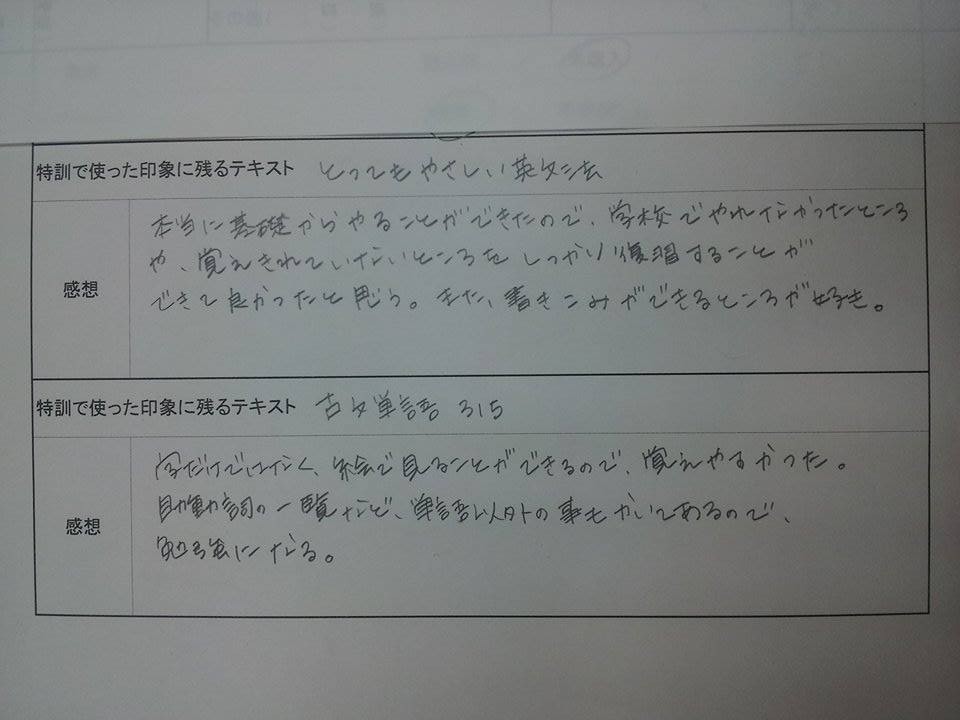 特訓で使った印象に残るテキスト とってもやさしい英文法
感想
本当に基礎からやることができたので、学校でやれなかったところ
や、覚えきれていないところをしっかり復習することが
できて良かったと思う。また、書きこみができるところが好き。
特訓で使った印象に残るテキスト 古文単語 315
感想
字だけではなく、絵で見ることができるので、覚えやすかった。
助動詞の一覧など、単語以外の事もかいてあるので、
勉強になる。